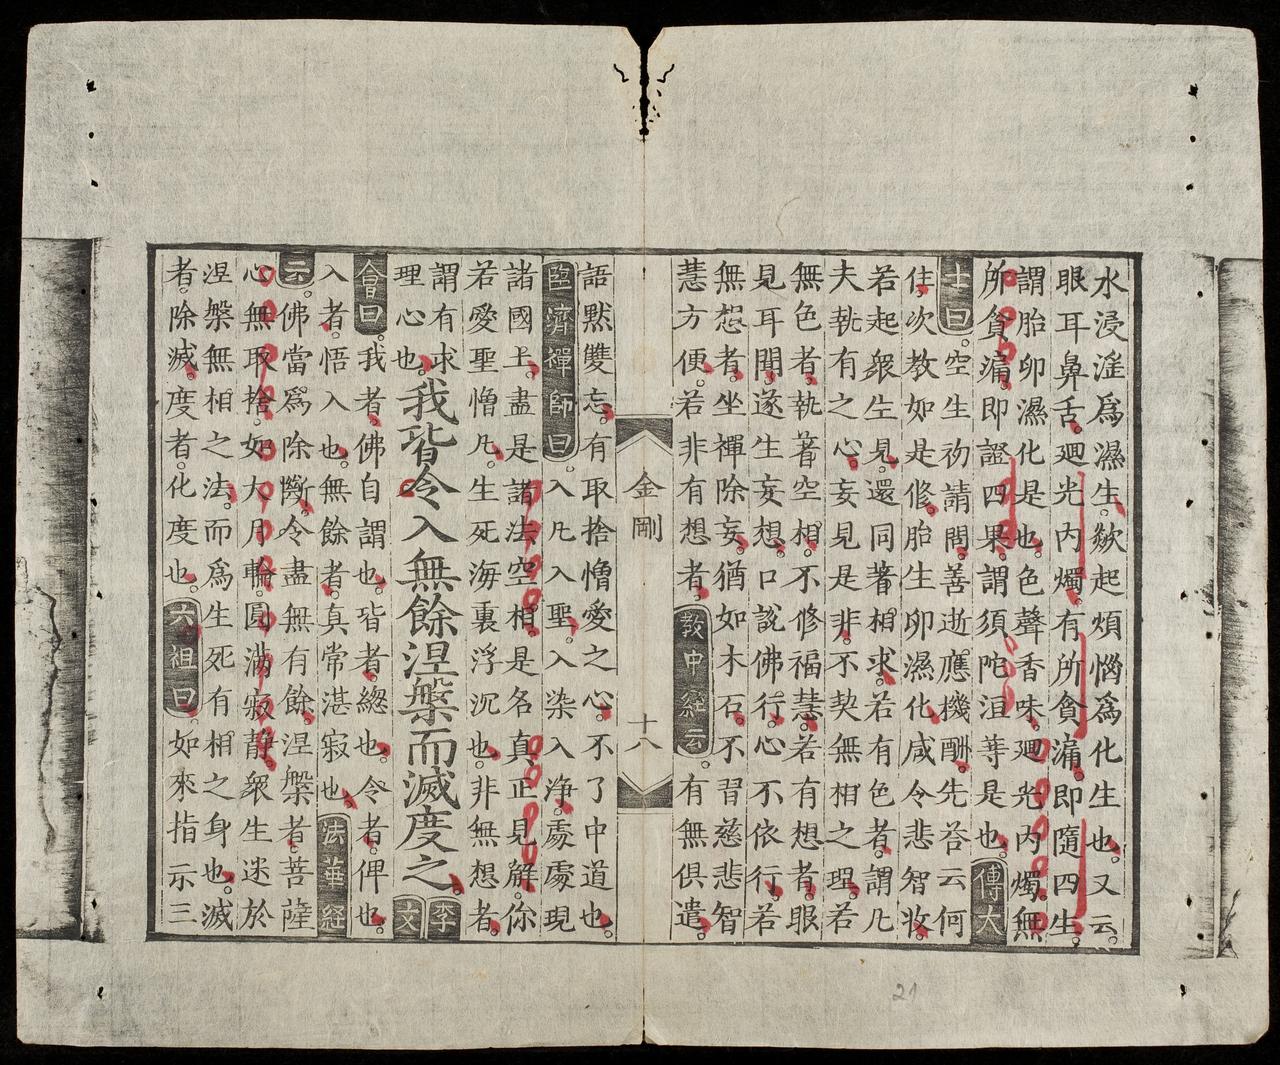 水浸滛爲濕生。歘起煩惱爲化生也。又云。
眼耳鼻舌。廻光内燭。有所貪漏。即隨四生。
謂胎卵濕化是也。色聲香味。廻光内燭。無
所貪漏。即證四果。謂須陀洹等是也。傅大
士曰。空生初請問。善逝應機酬。先荅云何
住。次教如是修。胎生卵濕化。咸令悲智收。
若起衆生見。還同著相求。若有色者。謂凡
夫執有之心。妄見是非。不契無相之理。若
無色者。執著空相。不修福慧。若有想者。眼
見耳聞。遂生妄想。口説佛行。心不依行。若
無想者。坐禪除妄。猶如木石。不習慈悲智
慧方便。若非有想者。教中經云。有無俱遣。
金剛
十八
語默雙忘。有取捨憎愛之心。不了中道也。
臨濟禪師曰。入凡入聖。入染入浄。處處現
諸國土。盡是諸法空相。是名真正見解。你
若愛聖憎凡。生死海裏浮沉也。非無想者。
謂有求
理心也。我皆令入無餘涅槃而滅度之。李
文
會曰。我者。佛自謂也。皆者。總也。令者。俾也。
入者。悟入也。無餘者。真常湛寂也。法華經
云。佛當爲除斷。令盡無有餘。涅槃者。菩薩
心無取捨。如大月輪。圓满寂静。衆生迷於
涅槃無相之法。而爲生死有相之身也。滅
者。除滅。度者。化度也。六祖曰。如來指示三
21